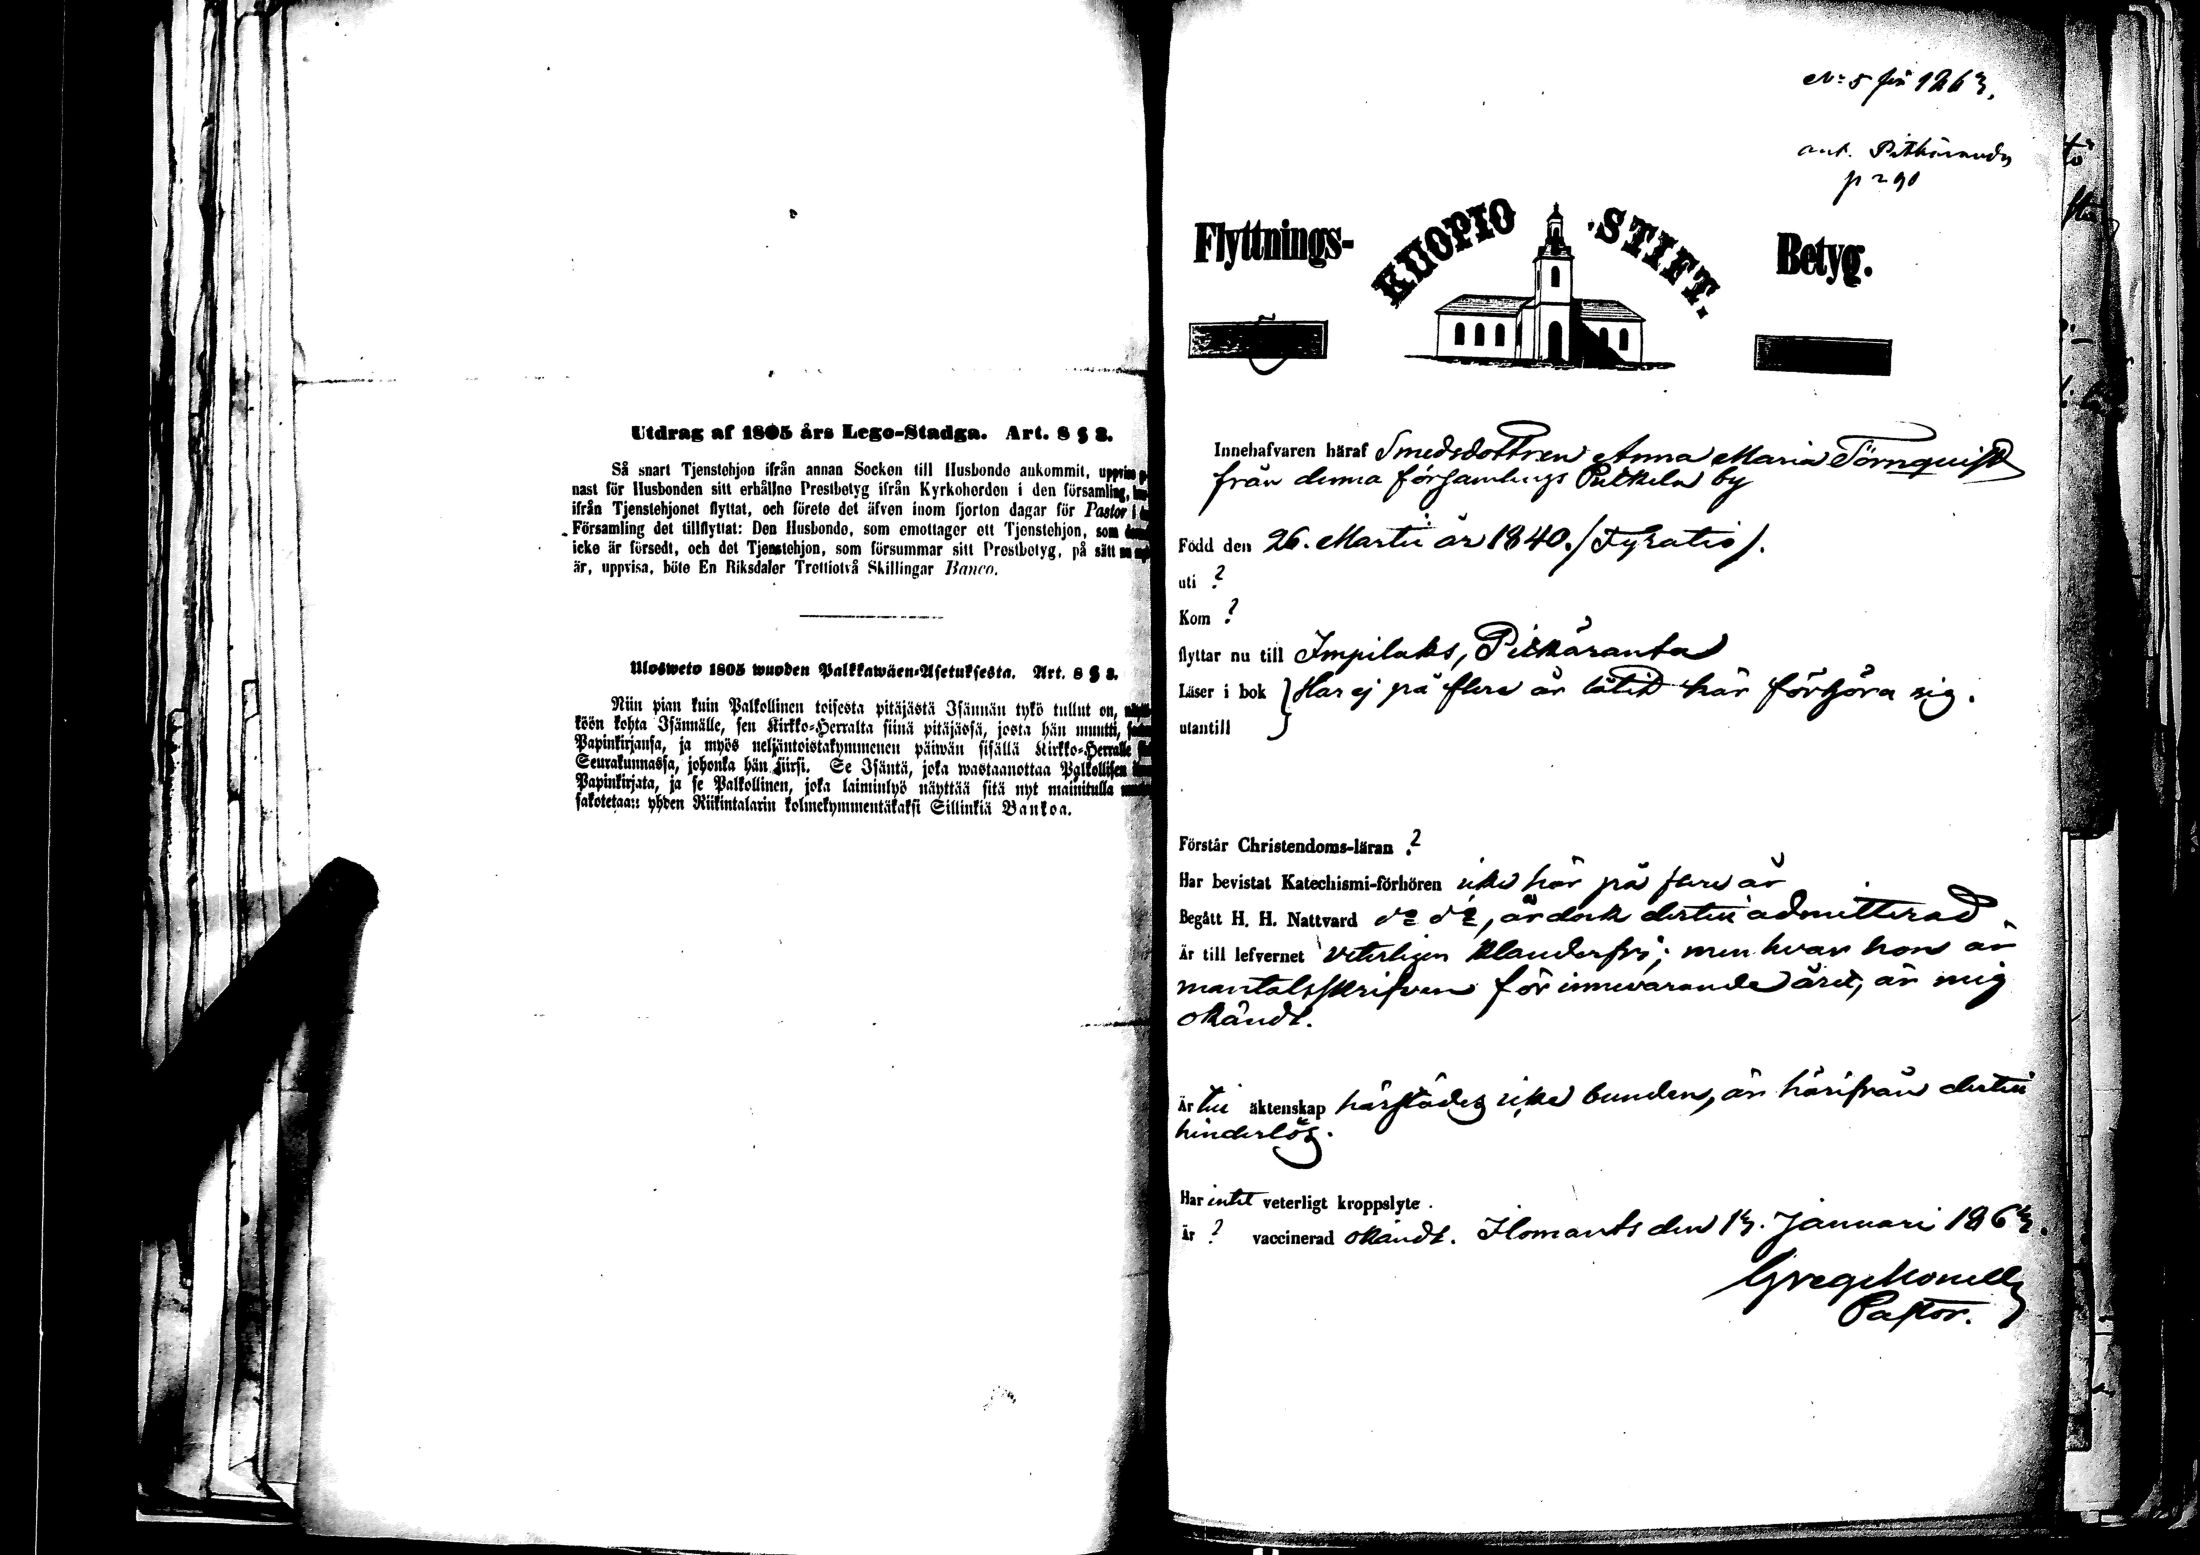 Utdrag af 1805 års Lego-Stadga. Art. 8 § 3.
Så snart Tjenstehjon ifrån annan Socken till Husbonde ankommit, uppvise
nast för Husbonden sitt erhållne Prestbetyg ifrån Kyrkoherden i den församling,
ifrån Tjenstehjonet flyttat, och förete det äfven inom fjorton dagar för Pastor i
Församling det tillflyttat: Den Husbonde, som emottager ett Tjenstehjon, som
icke är försedt, och det Tjenstehjon, som försummar sitt Prestbetyg, på sätt
är, uppvisa, böte En Riksdaler Trettiotvå Skillingar Banco.
Ulosweto 1805 wuoden Palkkawäen-Asetuksesta. Art. 8 § 3.
Niin pian kuin Palkollinen toisesta pitäjästä Isännän tykö tullut on,
köön kohta Isännälle, sen Kirkko-Herralta siinä pitäjässä, josta hän muutti,
Papinkirjansa, ja myös neljäntoistakymmenen päiwän sisällä Kirkko-Herralle
Seurakunnassa, johonka hän siirsi. Se Isäntä, joka wastaanottaa Palkollisen
Papinkirjata, ja se Palkollinen, joka laiminlyö näyttää sitä nyt mainitulla
sakotetaan yhden Riikintalarin kolmekymmentäkaksi Sillinkiä Bankoa.
N:o 5 för 1863.
ant. Pitkäranda
p 290
Flyttnings- KUOPIO STIFT. Betyg.
Innehafvaren häraf Smedsdottren Anna Maria Törnquist
från denna församlings by
Född den 26. Martii år 1840.
uti ?
Kom ?
flyttar nu till Impilaks, Pitkäranta
Läser i bok } Har ej på flere år låtit här förhöra sig.
utantill
Förstår Christendoms-läran ?
Har bevistat Katechismi-förhören icke här på flere år
Begått H. H. Nattvard d:o d:o, är dock dertill admitterad.
Är till lefvernet veterligen klanderfri; men hvar hon är
mantalsskrifven för innevarande året, är mig
okändt.
Är till äktenskap härstädes icke bunden, är härifrån dertill
hinderlös.
Har intet veterligt kroppslyte.
Är ? vaccinerad okändt. Ilomants den 13. Januari 1863.
Pastor.